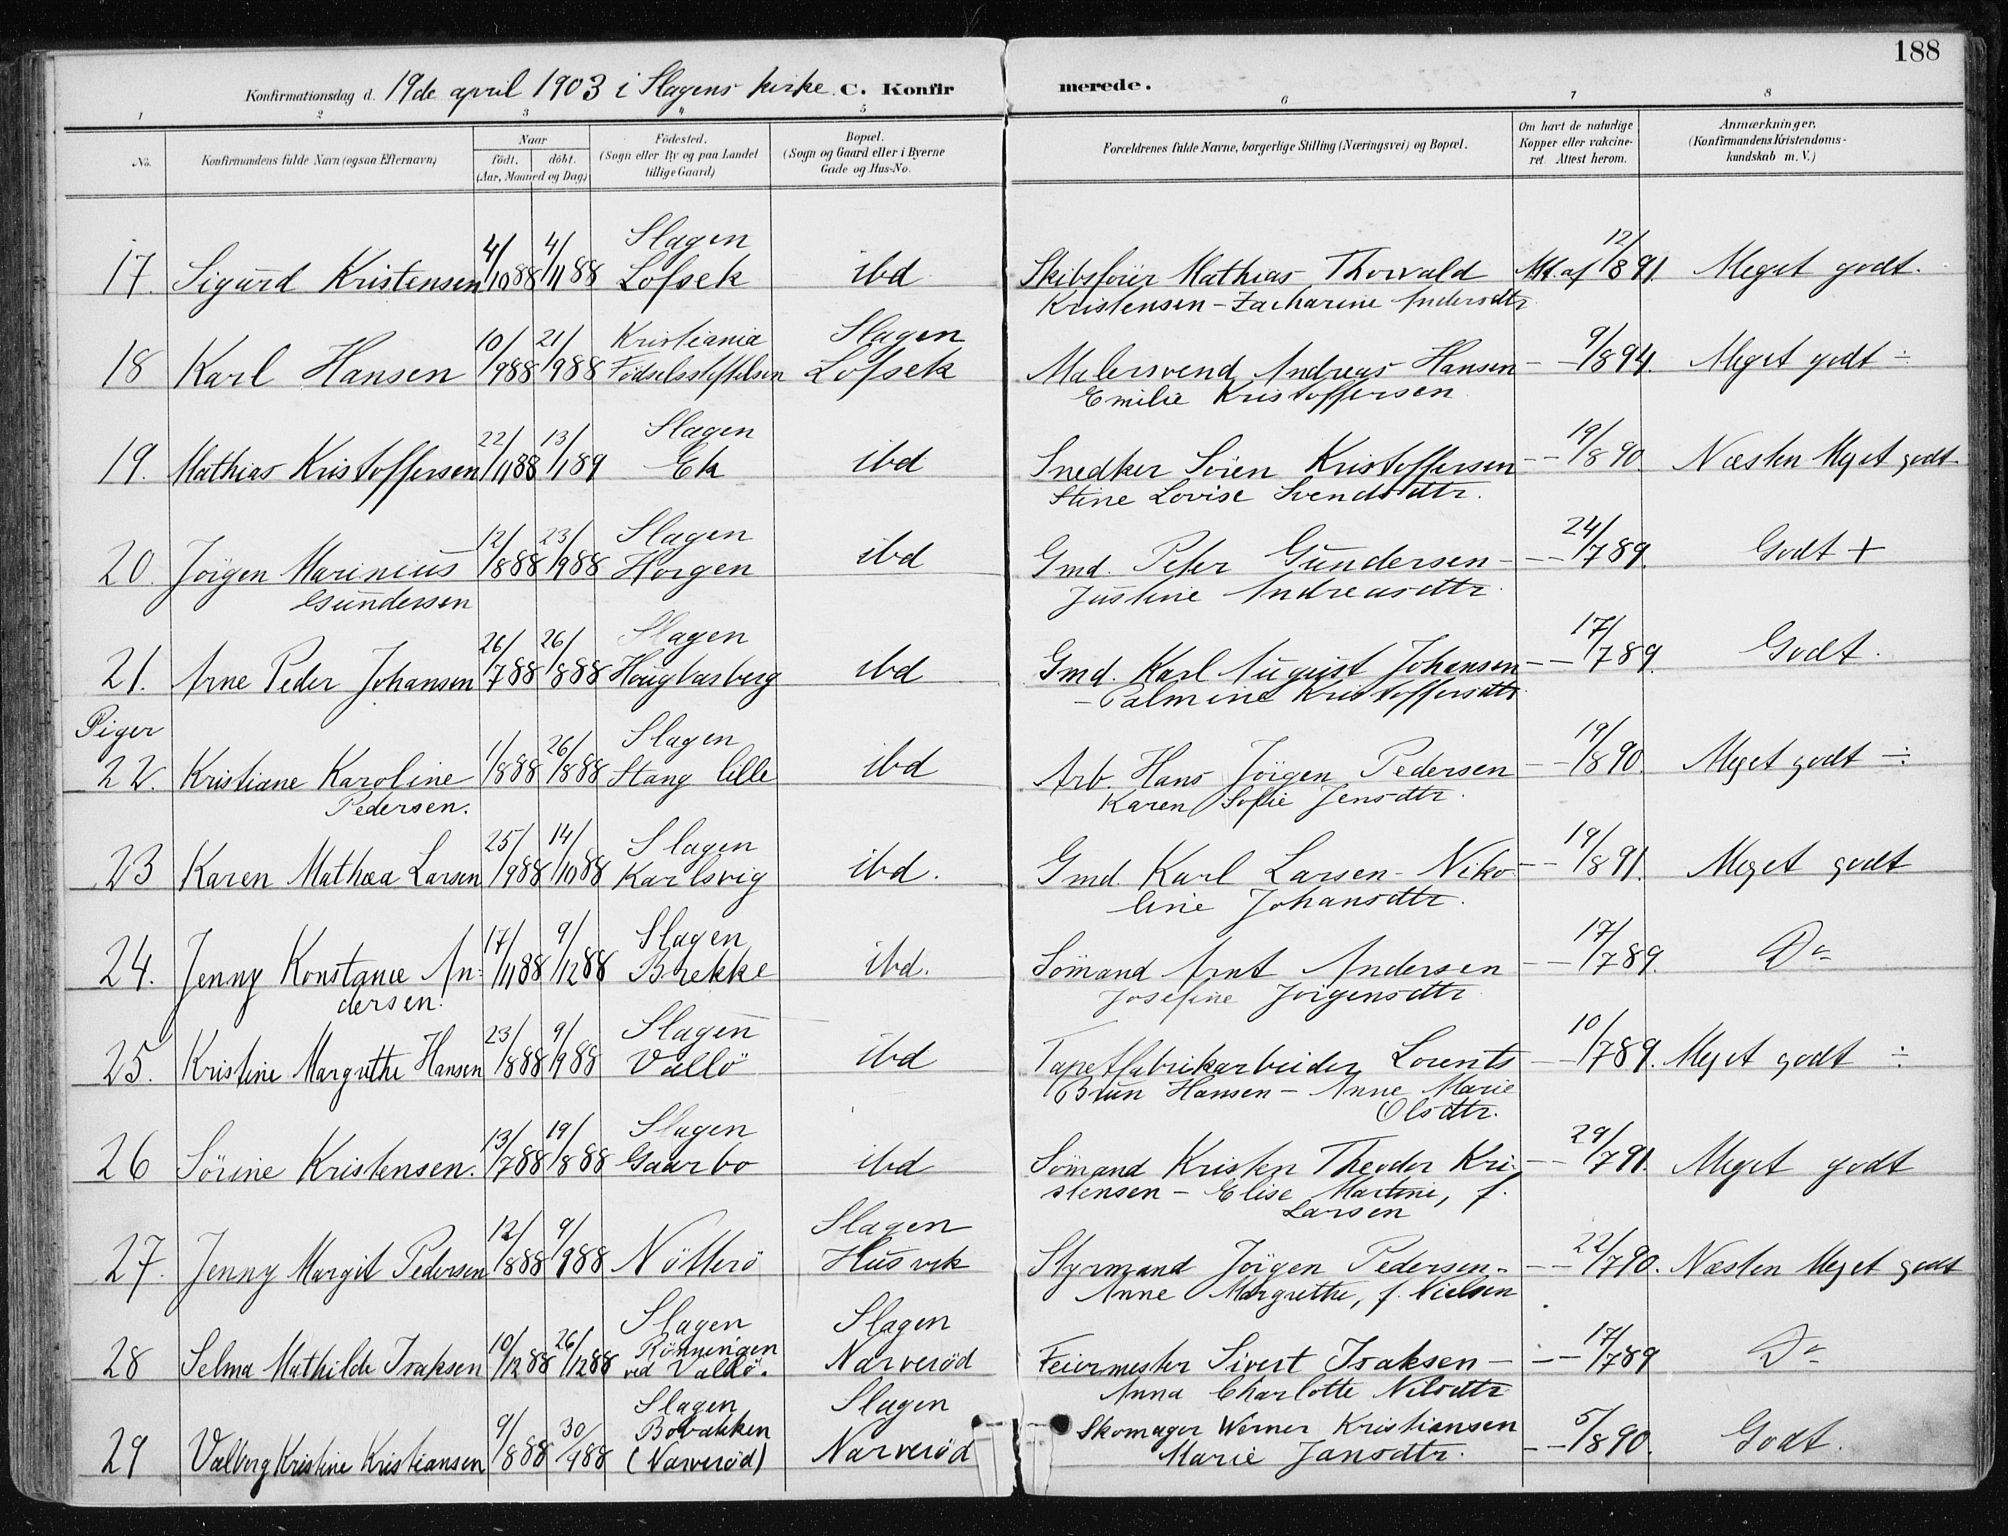 188
Konfirmationsdag d. 19de april 1903 i Slagens kirke. C. Konfir merede.
1 2 3 4 5 6 7 8
No. Konfirmandens fulde Navn (ogsaa Efternavn) Naar født. døbt. (Aar, Maaned og Dag) Fødested. (Sogn eller By og paa Landet tillige Gaard) Bopæl. (Sogn og Gaard eller i Byerne Gade og Hus-No. Forældrenes fulde Navne, borgerlige Stilling (Næringsvei) og Bopæl. Om havt de naturlige Kopper eller vakcineret. Attest herom. Anmærkninger. (Konfirmandens Kristendomskundskab m. V.)
17. Sigurd Kristensen 4/10 88 4/11 88 Slagen Lofsek ibd Skibsfører Mathias Thorvald Att. af 12/8 91. Meget godt.
Kristensen - Zacharine Andersdtr
18 Karl Hansen 10/9 88 21/9 88 Kristiania Fødselsstiftelsen Slagen Lofsek Malersvend Andreas Hansen - - 9/8 94. Meget godt ÷
Emilie Kristoffersen
19. Mathias Kristoffersen 22/11 88 13/1 89 Slagen Ek ibd Snedker Sören Kristoffersen - - 19/8 90. Næsten Meget godt
Stine Lovise Svendsdtr.
20. Jörgen Marinius 12/8 88 23/9 88 Slagen Horgen ibd Gmd. Peter Gundersen - - - 24/7 89. Godt +
Gundersen Justine Andreasdtr.
21. Arne Peder Johansen 26/7 88 26/8 88 Slagen Hougbasberg ibd Gmd. Karl August Johansen - - 17/7 89. Godt.
- Palmine Kristoffersdtr
Piger
22. Kristiane Karoline 1/8 88 26/8 88 Slagen Stang lille ibd Arb. Hans Jörgen Pedersen - - 19/8 90. Meget godt ÷
Pedersen. Karen Sofie Jensdtr.
23 Karen Mathea Larsen 25/9 88 14/10 88 Slagen Karlsvig ibd. Gmd. Karl Larsen - Niko - - 19/8 91. Meget godt
line Johansdtr.
24. Jenny Konstance An- 17/11 88 9/12 88 Slagen Brekke ibd. Sömand Arnt Andersen - - 17/7 89. Do
dersen. Josefine Jörgensdtr
25. Kristine Margrethe Hansen 23/8 88 9/9 88 Slagen Vallö ibd Tapetfabrikarbeider Lorents - - 10/7 89. Meget godt ÷
Brun Hansen - Anne Marie
Olsdtr.
26 Sörine Kristensen. 13/7 88 19/8 88 Slagen Gaarbo ibd Sömand Kristen Theodor Kri- - - 29/7 91. Meget godt
stensen - Elise Martine, f.
Larsen
27. Jenny Margit Pedersen 12/8 88 9/9 88 Nötterö Slagen Husvik Styrmand Jörgen Pedersen. - - 22/7 90. Næsten Meget godt
Anne Margrethe, f. Nielsen
28 Selma Mathilde Isaksen 10/12 88 26/12 88 Slagen Rönningen ved Vallö. Slagen Narveröd Feiermester Sivert Isaksen - - - 17/7 89 Do
Anna Charlotte Nilsdtr
29 Valborg Kristine Kristiansen 9/8 88 30/9 88 Slagen Bobakken (Narveröd) Slagen Narveröd Skomager Werner Kristiansen - - 5/8 90. Godt.
Marie Jansdtr.